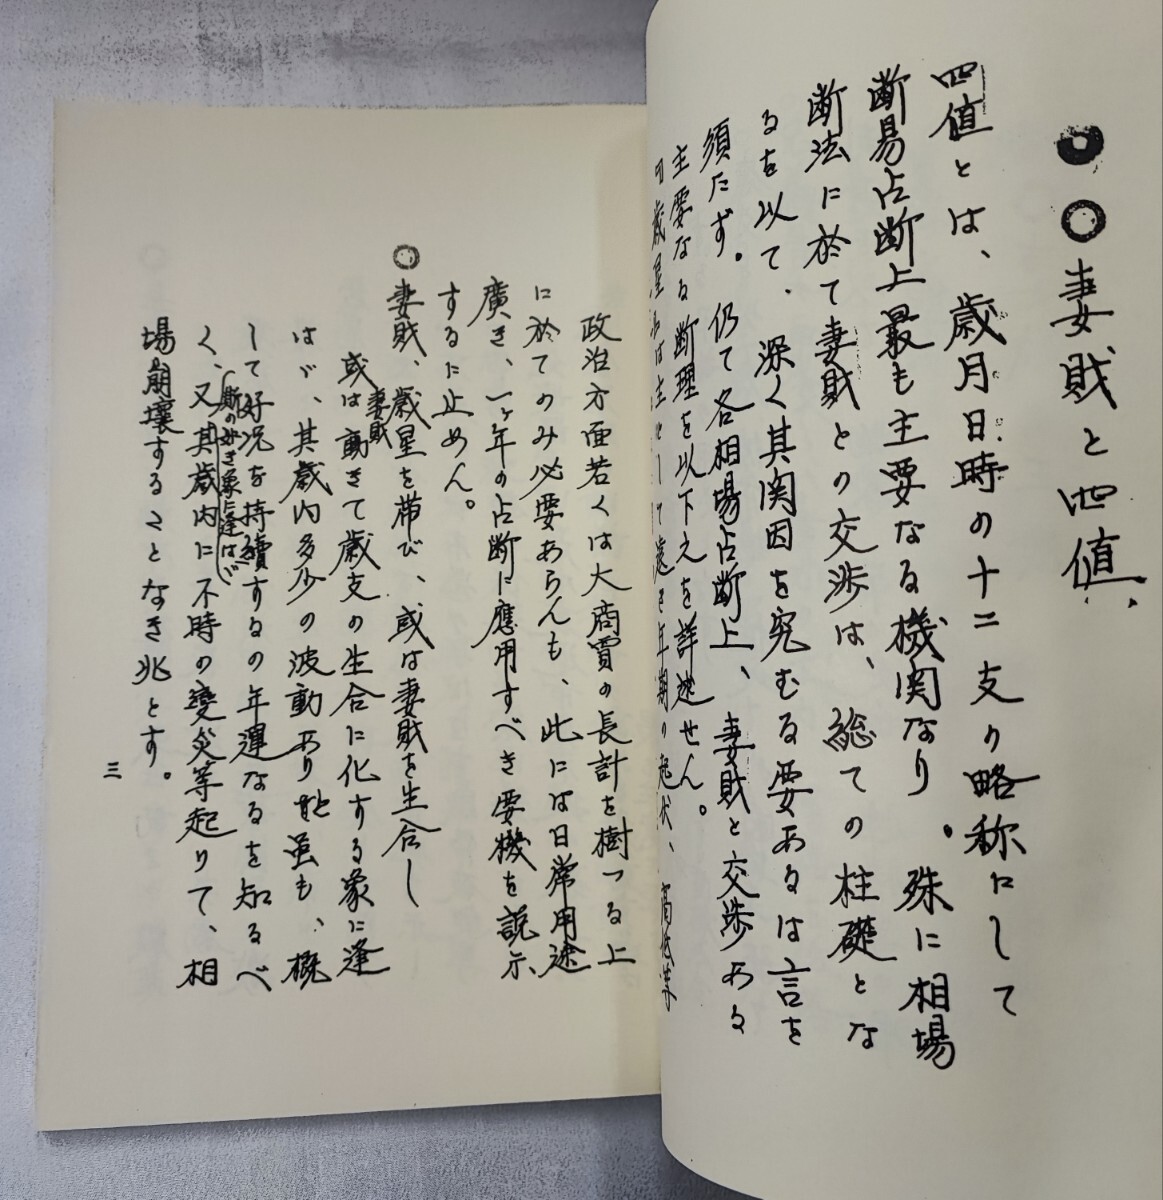 ◯妻財と四値、
四値とは、歳月日時の十二支の略称にして
断易占断上最も主要なる機関なり。殊に相場
断法に於て妻財との交渉は、総ての柱礎とな
るを以て、深く其関因を究むる要あるは言を
須たず。仍て各相場占断上、妻財と交渉ある
主要なる断理を以下之を詳述せん。
歳星
は主として遠き年期の起伏、高低等
政治方面若くは大商賈の長計を樹つる上
に於てのみ必要あらんも、此には日常用途
廣き、一ヶ年の占断に應用すべき要機を説示
するに止めん。
◯妻財、歳星を帯び、或は妻財を生合し
或は妻財動きて歳支の生合に化する象に逢
はゞ、其歳内多少の波動あり雖も、概
して好況を持續するの年運なるを知るべ
く、又斯の如き象に逢はゞ其歳内に不時の變災等起りて、相
場崩壊することなき兆とす。
三